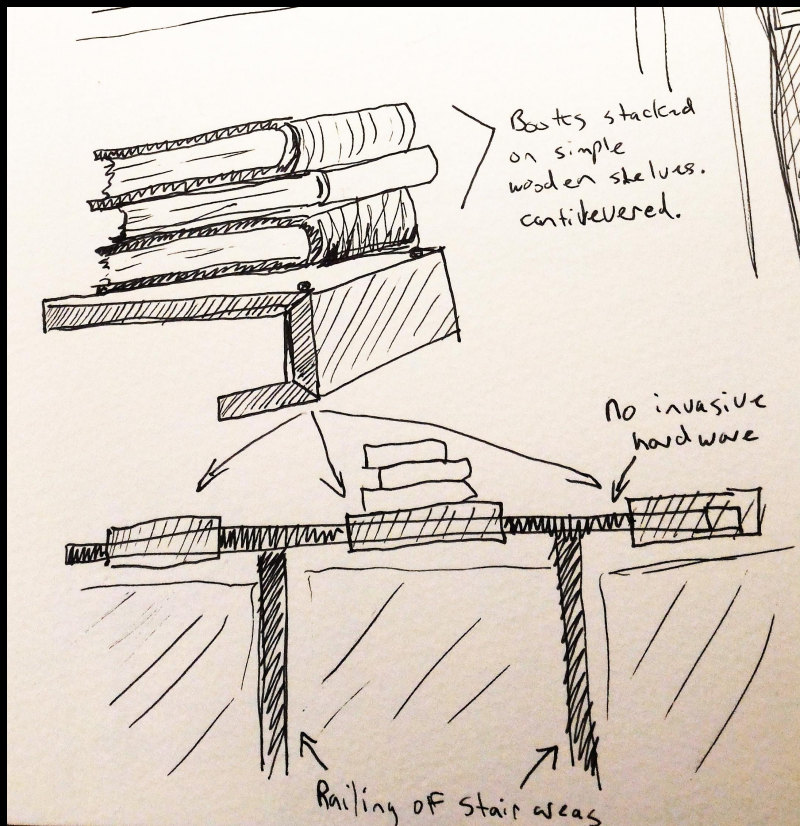 Books stacked
on simple
wooden shelves.
cantilevered.
No invasive
hardware
Railing of stair areas